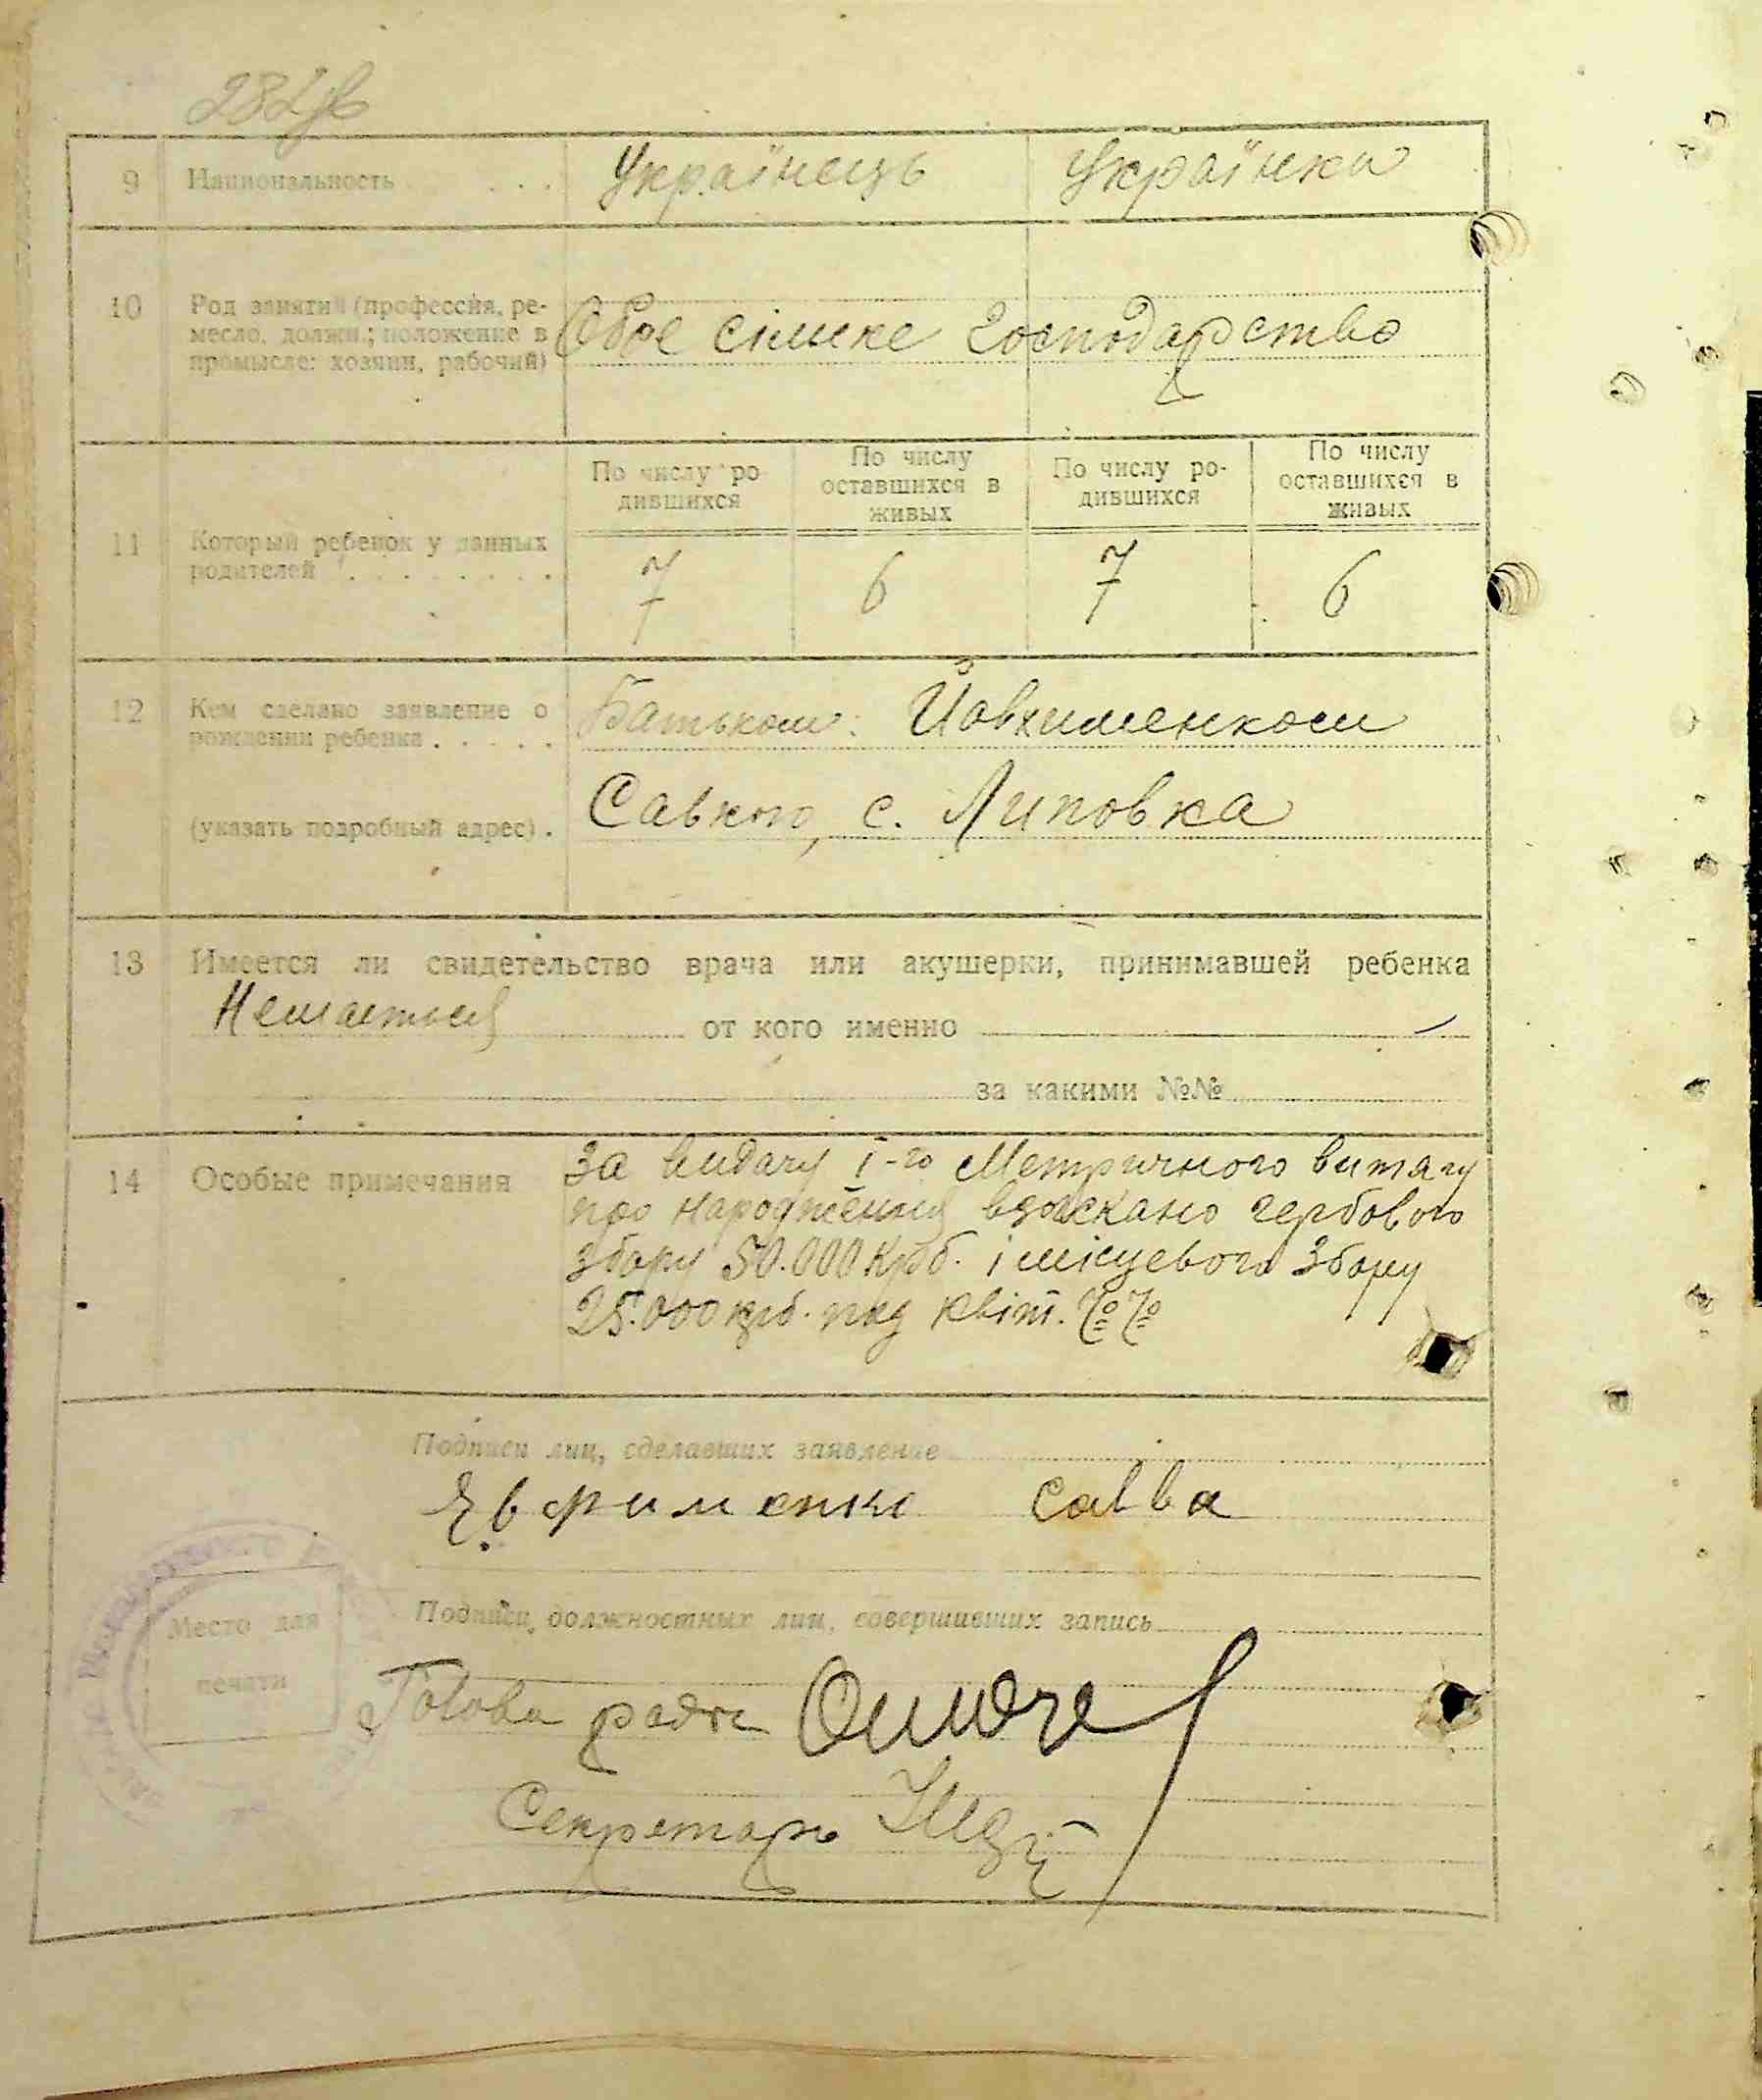 9 Национальность . . . Українець Українка
10 Род занятий (профессия, ре-
месло, должн.; положение в
промысле: хозяин, рабочий)
Обое сільске господарство
По числу ро-
дившихся
По числу
оставшихся в
живых
По числу ро-
дившихся
По числу
оставшихся в
живых
11 Который ребенок у данных
родителей . . . . . . . .
7 6 7 6
12 Кем сделано заявление о
рождении ребенка . . . . .
Батьком: Йовхименком
(указать подробный адрес) . Савкою, с. Липовка
13 Имеется ли свидетельство врача или акушерки, принимавшей ребенка
Немаеться от кого именно —
за какими №№
14 Особые примечания
За видачу 1-го Метричного витягу
про народження взыскано гербового
збору 50.000 крб. і місцевого збору
25.000 крб. під квіт. №№
Подписи лиц, сделавших заявление
Евфименко Савва
Подписи должностных лиц, совершивших запись
Место для
печати
Голова ради
Секретарь